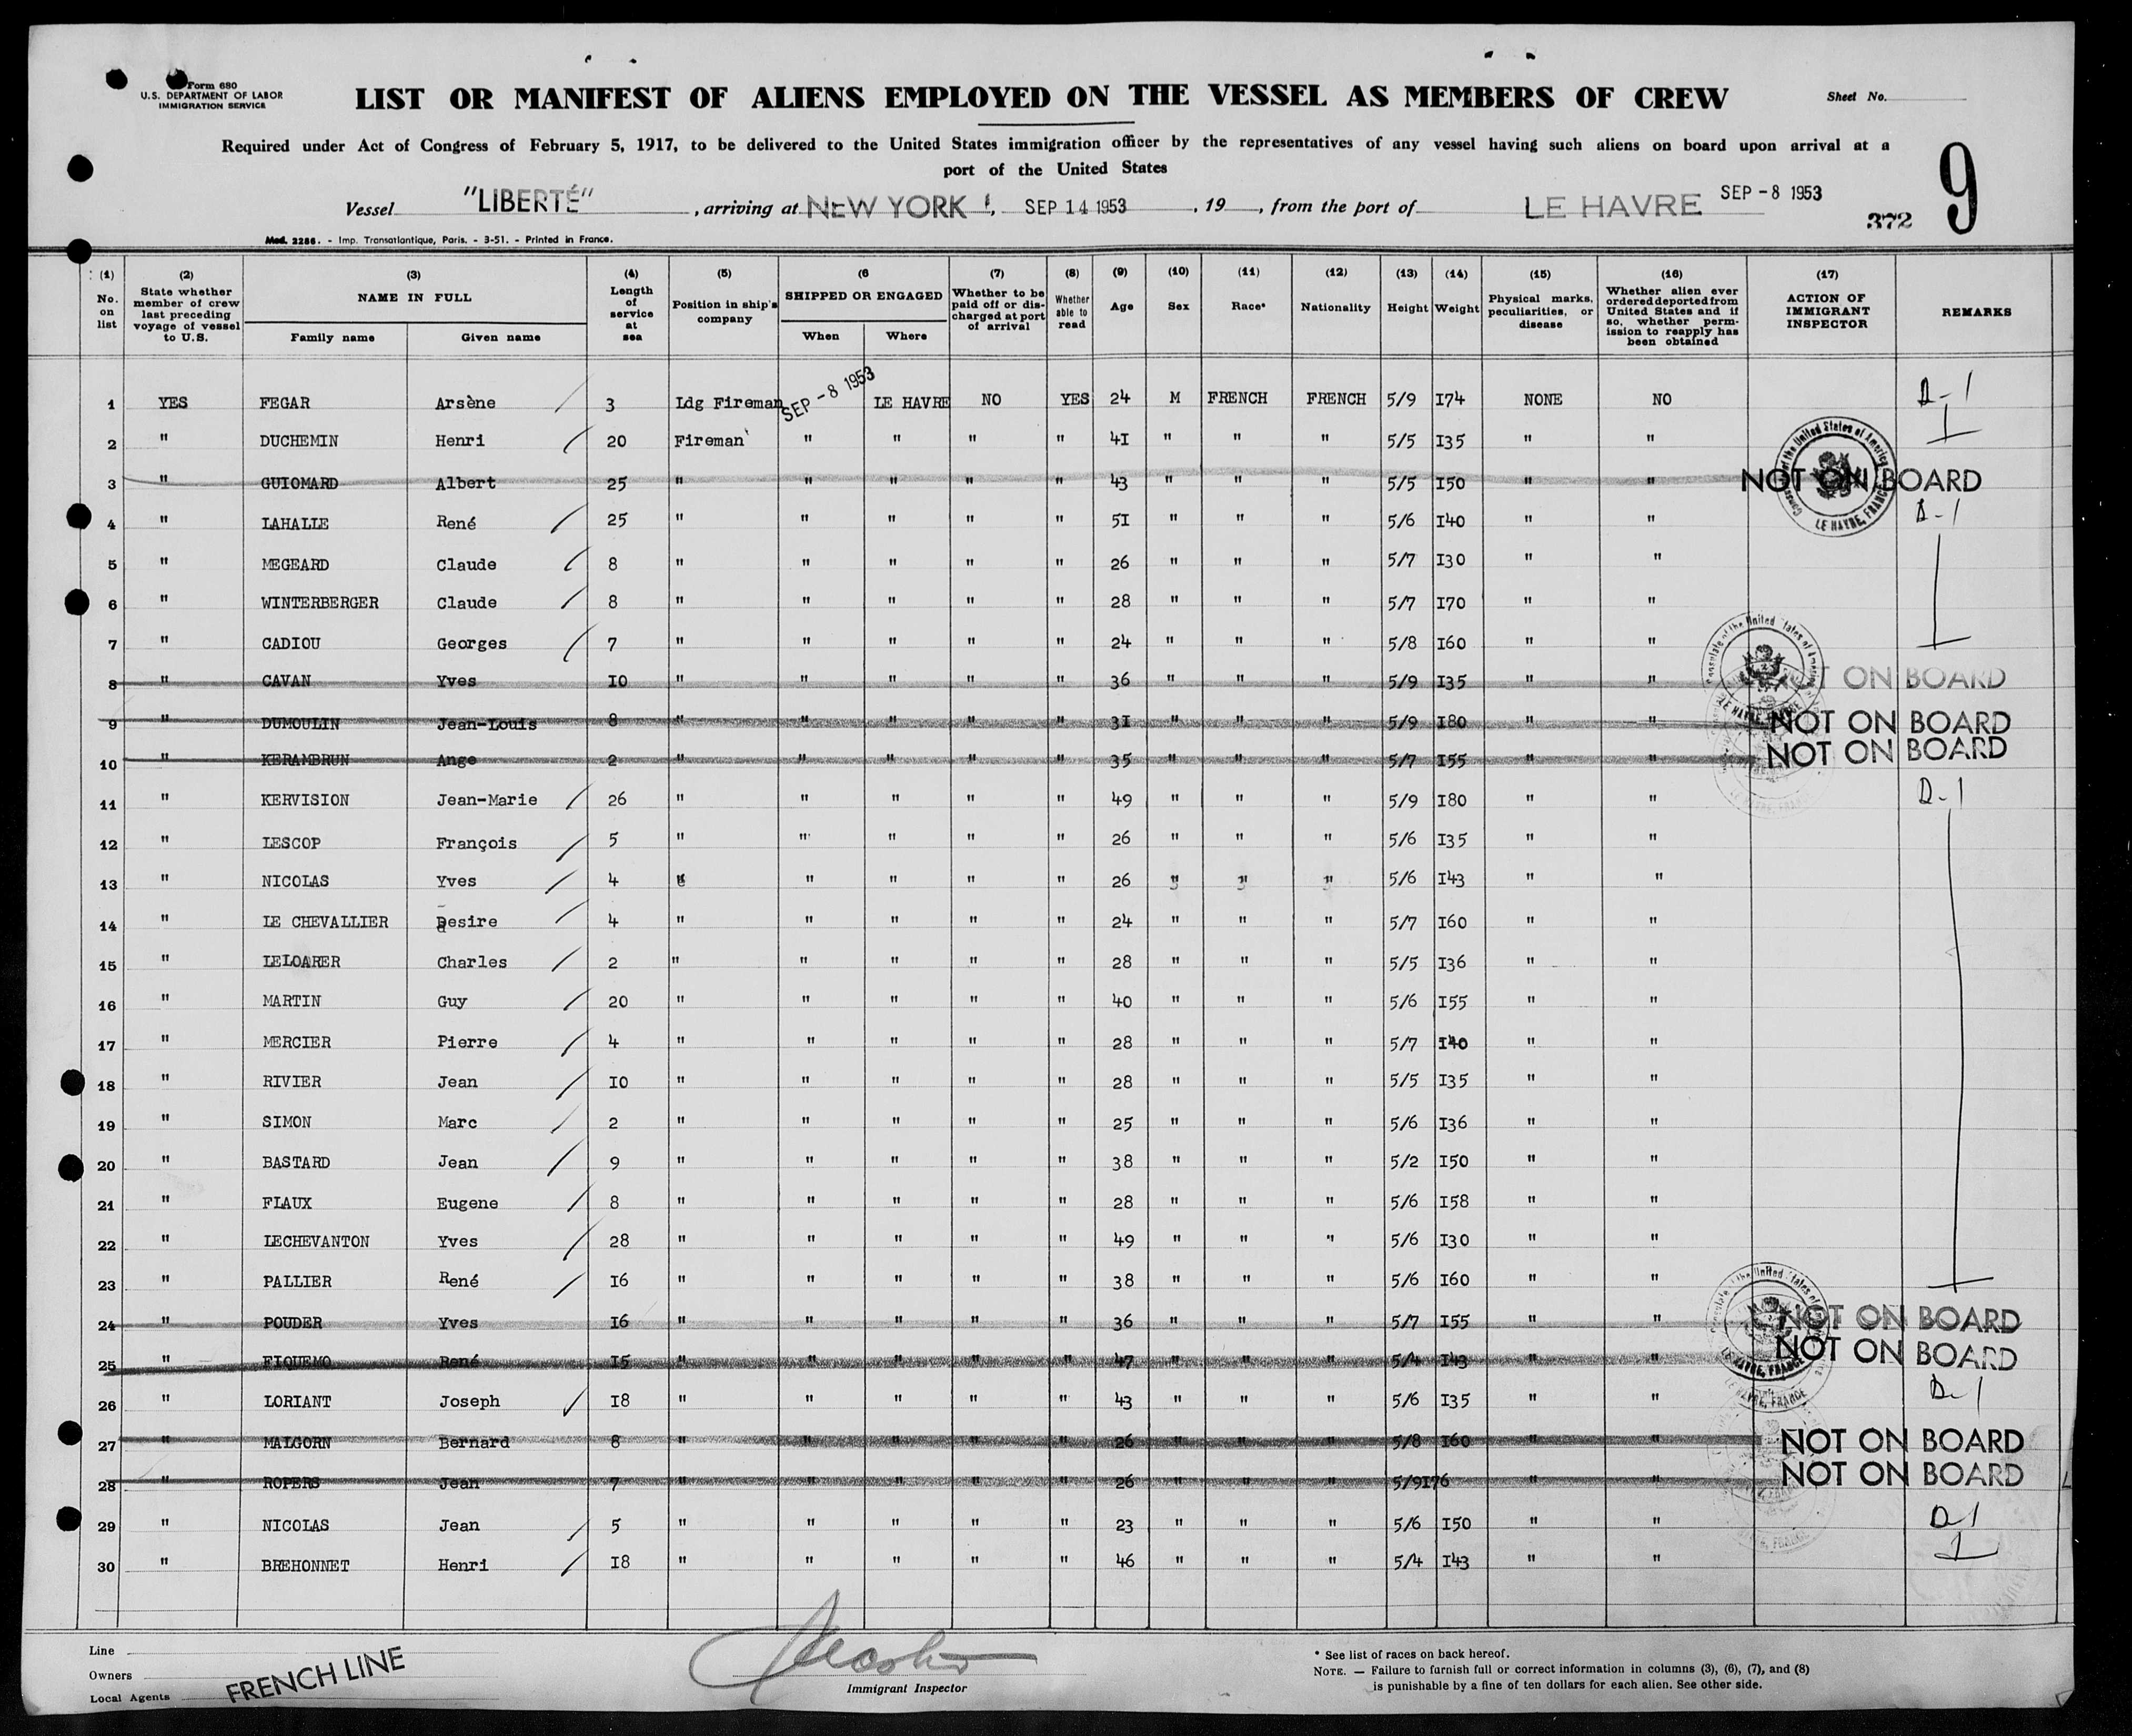 Form 680
U.S. DEPARTMENT OF LABOR
IMMIGRATION SERVICE
LIST OR MANIFEST OF ALIENS EMPLOYED ON THE VESSEL AS MEMBERS OF CREW
Sheet No.
Required under Act of Congress of February 5, 1917, to be delivered to the United States immigration officer by the representatives of any vessel having such aliens on board upon arrival at a
port of the United States
9
Vessel "LIBERTÉ" , arriving at NEW YORK , SEP 14 1953 , 19 , from the port of LE HAVRE SEP -8 1953
372
Mod. 2286. - Imp. Transatlantique, Paris. - 3-51. - Printed in France.
(1) (2) (3) (4) (5) (6 (7) (8) (9) (10) (11) (12) (13) (14) (15) (16) (17)
No. on list State whether member of crew last preceding voyage of vessel to U.S. NAME IN FULL Length of service at sea Position in ship's company SHIPPED OR ENGAGED Whether to be paid off or discharged at port of arrival Whether able to read Age Sex Race* Nationality Height Weight Physical marks, peculiarities, or disease Whether alien ever ordered deported from United States and if so, whether permission to reapply has been obtained ACTION OF IMMIGRANT INSPECTOR REMARKS
Family name Given name When Where
1 YES FEGAR Arsène 3 Ldg Fireman SEP -8 1953 LE HAVRE NO YES 24 M FRENCH FRENCH 5/9 I74 NONE NO D-1
2 " DUCHEMIN Henri 20 Fireman " " " " 41 " " " 5/5 I35 " "
3 " GUIOMARD Albert 25 " " " " " 43 " " " 5/5 I50 " " NOT ON BOARD
4 " LAHALLE René 25 " " " " " 51 " " " 5/6 I40 " " D-1
5 " MEGEARD Claude 8 " " " " " 26 " " " 5/7 I30 " "
6 " WINTERBERGER Claude 8 " " " " " 28 " " " 5/7 I70 " "
7 " CADIOU Georges 7 " " " " " 24 " " " 5/8 I60 " "
8 " CAVAN Yves I0 " " " " " 36 " " " 5/9 I35 " " ON BOARD
9 " DUMOULIN Jean-Louis 8 " " " " " 31 " " " 5/9 I80 " " NOT ON BOARD
10 " KERAMBRUN Ange 2 " " " " " 35 " " " 5/7 I55 " " NOT ON BOARD
11 " KERVISION Jean-Marie 26 " " " " " 49 " " " 5/9 I80 " " D-1
12 " LESCOP François 5 " " " " " 26 " " " 5/6 I35 " "
13 " NICOLAS Yves 4 " " " " " 26 " " " 5/6 I43 " "
14 " LE CHEVALLIER Desire 4 " " " " " 24 " " " 5/7 I60 " "
15 " LELOARER Charles 2 " " " " " 28 " " " 5/5 I36 " "
16 " MARTIN Guy 20 " " " " " 40 " " " 5/6 I55 " "
17 " MERCIER Pierre 4 " " " " " 28 " " " 5/7 I40 " "
18 " RIVIER Jean I0 " " " " " 28 " " " 5/5 I35 " "
19 " SIMON Marc 2 " " " " " 25 " " " 5/6 I36 " "
20 " BASTARD Jean 9 " " " " " 38 " " " 5/2 I50 " "
21 " FLAUX Eugene 8 " " " " " 28 " " " 5/6 I58 " "
22 " LECHEVANTON Yves 28 " " " " " 49 " " " 5/6 I30 " "
23 " PALLIER René I6 " " " " " 38 " " " 5/6 I60 " "
24 " POUDER Yves I6 " " " " " 36 " " " 5/7 I55 " " NOT ON BOARD
25 " FIQUEMO René I5 " " " " " 47 " " " 5/4 I43 " " NOT ON BOARD
26 " LORIANT Joseph I8 " " " " " 43 " " " 5/6 I35 " " D-1
27 " MALGORN Bernard 8 " " " " " 26 " " " 5/8 I60 " " NOT ON BOARD
28 " ROPERS Jean 7 " " " " " 26 " " " 5/9I76 " " NOT ON BOARD
29 " NICOLAS Jean 5 " " " " " 23 " " " 5/6 I50 " " D-1
30 " BREHONNET Henri I8 " " " " " 46 " " " 5/4 I43 " "
Consulate of the United States of America
LE HAVRE, FRANCE
Line
Owners
Local Agents
FRENCH LINE
Immigrant Inspector
* See list of races on back hereof.
NOTE. — Failure to furnish full or correct information in columns (3), (6), (7), and (8)
is punishable by a fine of ten dollars for each alien. See other side.